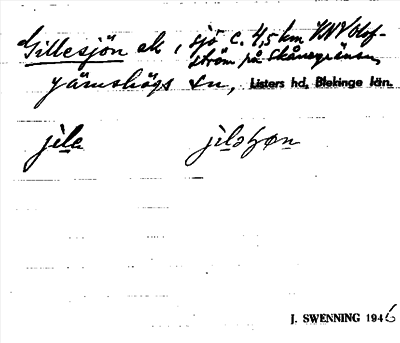 Gillesjön ek, sjö c. 4,5 km VNV Olof-
ström på Skånegränsen,
Jämshögs sn, Listers hd, Blekinge län.
jile jilsʃøn
J. SWENNING 1946